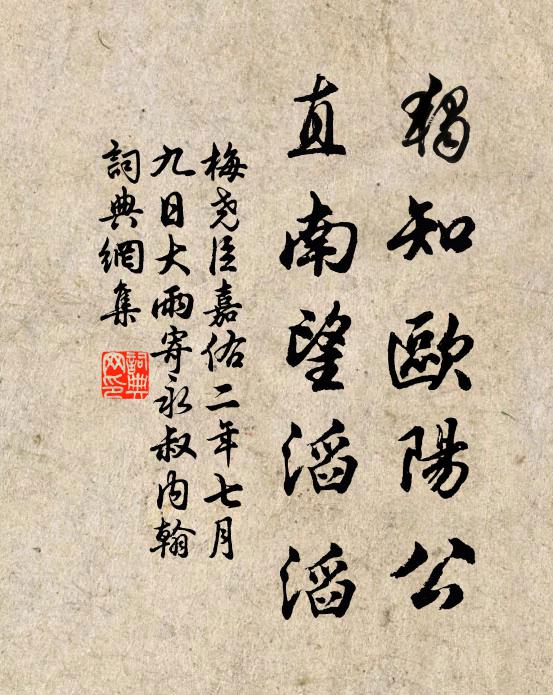 獨知歐陽公
直南望滔滔
梅尧臣嘉佑二年七月
九日大雨寄永叔内翰
詞典網集
詞典
网印